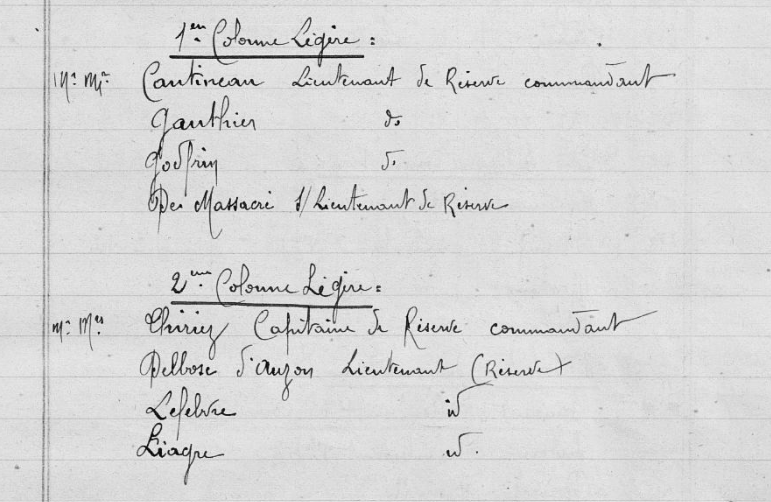 1er Colonne Légère :
Mr. Mrs. Cantineau Lieutenant de Réserve commandant
Gauthier do
Godfrin do
Des Massacré s/Lieutenant de Réserve
2eme Colonne Légère :
Mr. Mrs. Thiriez Capitaine de Réserve commandant
Delbose d'Auzon Lieutenant (Réserve)
Lefebvre id
Liagre id.